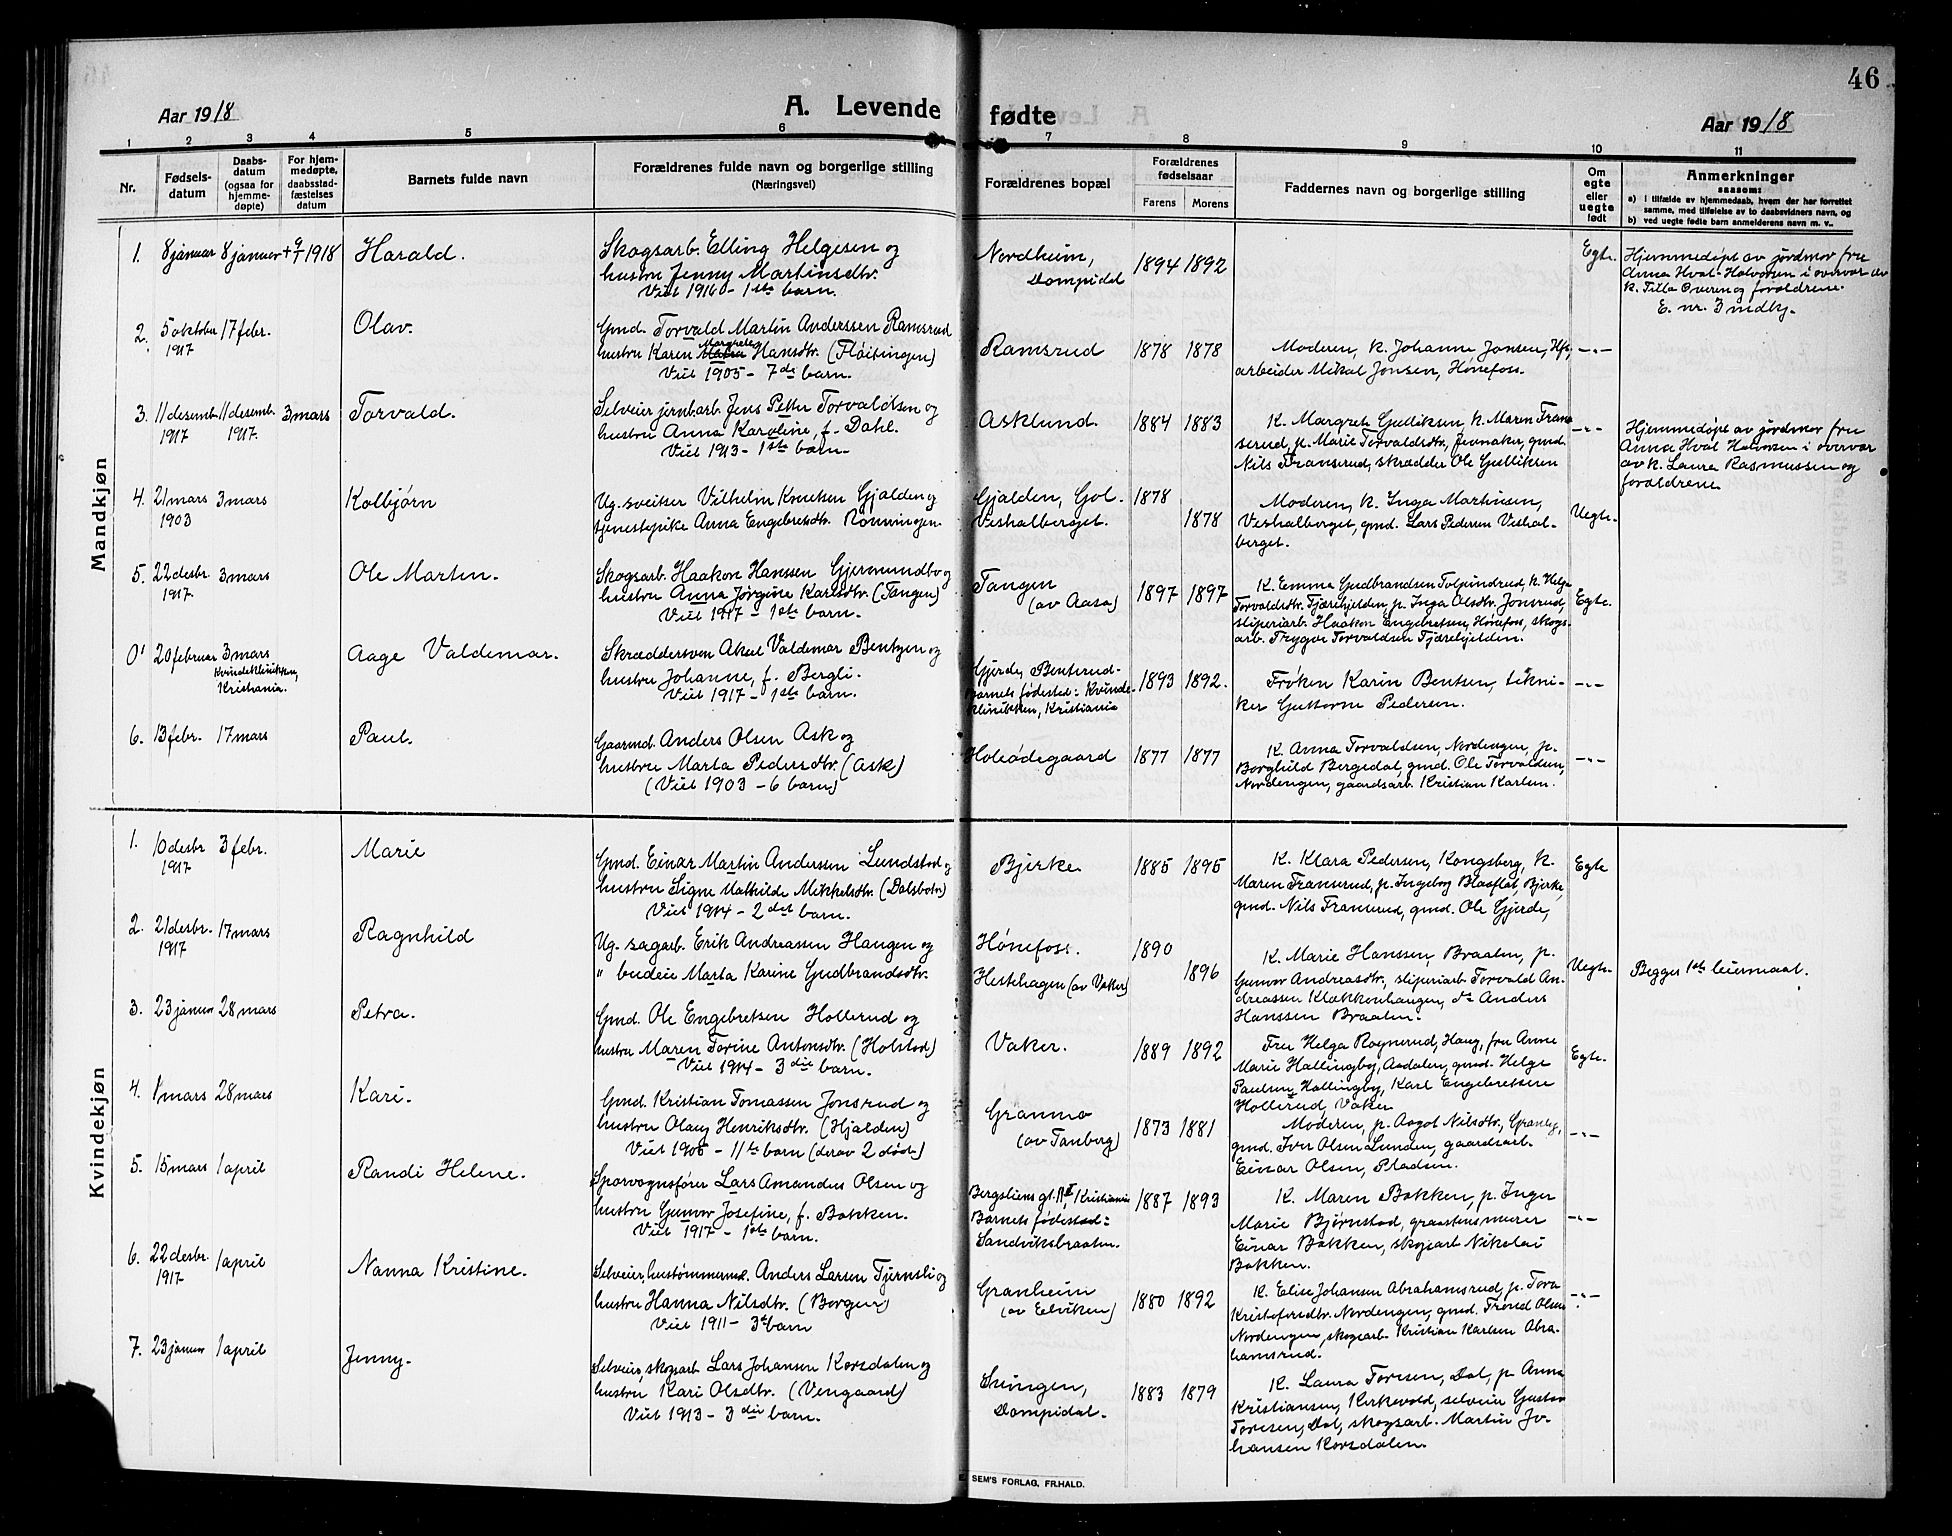 46
Aar 1918
A. Levende fødte
Aar 1918
1 2 3 4 5 6 7 8 9 10 11
Nr.
Fødsels-
datum
Daabs-
datum
(ogsaa for
hjemme-
døpte)
For hjem-
medøpte,
daabsstad-
fæstelses
datum
Barnets fulde navn
Forældrenes fulde navn og borgerlige stilling
(Næringsvei)
Forældrenes bopæl
Forældrenes
fødselsaar
Farens Morens
Faddernes navn og borgerlige stilling
Om
egte
eller
uegte
født
Anmerkninger
saasom:
a) i tilfælde av hjemmedaab, hvem der har forrettet
samme, med tilføielse av to daabsvidners navn, og
b) ved uegte fødte barn anmelderens navn m. v..
Mandkjøn
1. 8 januar 8 januar +9/1 1918 Harald.
Skogsarb. Elling Helgesen og
hustru Jenny Martinsdtr.
Viet 1916 - 1ste barn.
Nordheim,
Dompidal
1894 1892
Egte.
Hjemmedøpt av jordmor fru
Anna Hval-Halvorsen i overvær av
k. Tilla Overen og forældrene.
E. nr. 3 indby.
2. 5 oktober 17 febr. Olav.
1917
Gmd. Torvald Martin Anderssen Ramsrud
hustru Karen Margrethe Hansdtr. (Fløitingen)
Viet 1905 - 7de barn.
Ramsrud
1878 1878
Moderen, k. Johanne Jonsen, Hfs,
arbeider Mikal Jonsen, Hønefoss.
-"-
3. 11 desemb. 11 desemb. 3 mars Torvald.
1917 1917.
Selveier jernbarb. Jens Petter Torvaldsen og
hustru Anna Karoline, f. Dahl.
Viet 1913 - 1ste barn.
Asklund.
1884 1883
K. Margrete Gulliksen, k. Maren Tran-
serud, p. Marie Torvaldsdtr, Jennaker, gmd.
Nils Transerud, skrædder Ole Gulliksen
-"-
Hjemmedøpt av jordmor fru
Anna Hval Halvorsen i overvær
av k. Laura Rasmussen og
forældrene
4. 21 mars 3 mars Kolbjørn
1903
Ug. sveitser Vilhelm Knutsen Gjalden og
tjenestepike Anna Engebretsdtr. Rönningen.
Gjalden, Gol.
Veshalberget.
1878
1878
Moderen, k. Inga Martinsen,
Veshalberget, gmd. Lars Pedersen Veshal-
berget.
Uegte.
5. 22 desbr. 3 mars Ole Martin.
1917.
Skogsarb. Haakon Hanssen Gjermundbo og
hustru Anna Jørgine Karlsdtr. (Tangen)
Viet 1917 - 1ste barn.
Tangen
(av Aasa)
1897 1897
K. Emma Gudbrandsen Tolpinrud, k. Helga
Torvaldsdtr. Tjærehjelden, p. Inga Olsdtr. Jonsrud,
sliperiarb. Haakon Engebretsen, Hønefoss, skogs-
arb. Trygve Torvaldsen Tjærehjelden.
Egte.
0' 20 februar 3 mars Aage Valdemar.
Kvindeklinikken,
Kristiania.
Skræddersven Aksel Valdemar Bentzen og
hustru Johanne, f. Bergli.
Viet 1917 - 1ste barn.
Gjerde, Benterud-
Barnets fødested: Kvinde-
klinikken, Kristiania
1893 1892.
Frøken Karin Bentsen, tekni-
ker Guttorm Pedersen.
-"-
6. 13 febr. 17 mars Paul.
Gaarmd. Anders Olsen Ask og
hustru Marta Pedersdtr. (Ask)
(Viet 1903 - 6 barn)
Holeødegaard
1877 1877
K. Anna Torvaldsen, Nordengen, p.
Borghild Bergedal, gmd. Ole Torvaldsen,
Nordengen, gaardsarb. Kristian Karlsen.
-"-
Kvindekjøn
1. 10 desbr 3 febr. Marie
1917
Gmd. Einar Martin Anderssen Lundstad og
hustru Signe Mathilde Mikkelsdtr. (Dalsbotn)
Viet 1914 - 2det barn.
Bjerke
1885 1895
K. Klara Pedersen, Kongsberg, k.
Maren Transerud, p. Ingeborg Blaaflat, Bjerke,
gmd. Nils Transerud, gmd. Ole Gjerde,
Egte
2. 21 desbr. 17 mars Ragnhild
1917
Ug. sagarb. Erik Andreassen Haugen og
" budeie Marta Karine Gudbrandsdtr.
Hønefoss.
Hestehagen (av Vaker)
1890
1896
K. Marie Hanssen, Braaten, p.
Gunvor Andreasdtr, sliperiarb. Torvald An-
dreassen Klækkenhaugen, do Anders
Hanssen Braaten.
Uegte.
Begges 1ste leiermaal.
3. 23 januar 28 mars Petra.
Gmd. Ole Engebretsen Hollerud og
hustru Maren Torine Antonsdtr. (Holstad)
Viet 1914 - 3die barn.
Vaker.
1889 1892
Fru Helga Roynerud, Haug, fru Anne
Marie Hallingby, Aadalen, gmd. Helge
Paulsen Hallingby, Karl Engebretsen
Hollerud, Vaker
Egte.
4. 1 mars 28 mars Kari.
Gmd. Kristian Tomassen Jonsrud og
hustru Olaug Henriksdtr. (Hjalden)
Viet 1905 - 11te barn (derav 2 døde)
Granmo
(av Tanberg)
1873 1881
Moderen, p. Aagot Nilsdtr, Granly,
gmd. Iver Olsen Lunden, gaardsarb.
Einar Olsen, Pladsen.
-"-
5. 15 mars 1 april Randi Helene.
Sporvognsfører Lars Amandus Olsen og
hustru Gunvor Josefine, f. Bakken.
Viet 1917 - 1ste barn.
Bergsliens gt. Kristiania
Barnets fødested:
Sandviksbraaten.
1887 1893
K. Maren Bakken, p. Inger
Marie Bjørnstad, graastensmurer
Einar Bakken, skogsarb Nikolai
Bakken.
-"-
6. 22 desbr. 1 april Nanna Kristine.
1917
Selveier, hustømmermd. Anders Larsen Tjernsli og
hustru Hanna Nilsdtr. (Borgen)
Viet 1911 - 3e barn
Granheim
(av Elviken)
1880 1892
K. Elise Johansen Abrahamsrud, p. Tora
Kristofersdtr. Nordengen, gmd. Trond Olsen
Nordengen, skogsarb. Kristian Karlsen Abra-
hamsrud.
-"-
7. 23 januar 1 april Jenny.
Selveier, skogsarb. Lars Johansen Korsdalen og
hustru Kari Olsdtr. (Vengaard)
Viet 1913 - 3die barn.
Svingen,
Dompidal.
1883 1879
K. Laura Toresen, Dal, p. Anna
Kristiansen, Kirkevold, selveier Gustav
Toresen, Dal, skogsarb. Martin Jo-
hansen Korsdalen.
SEM'S FORLAG, FR.HALD.